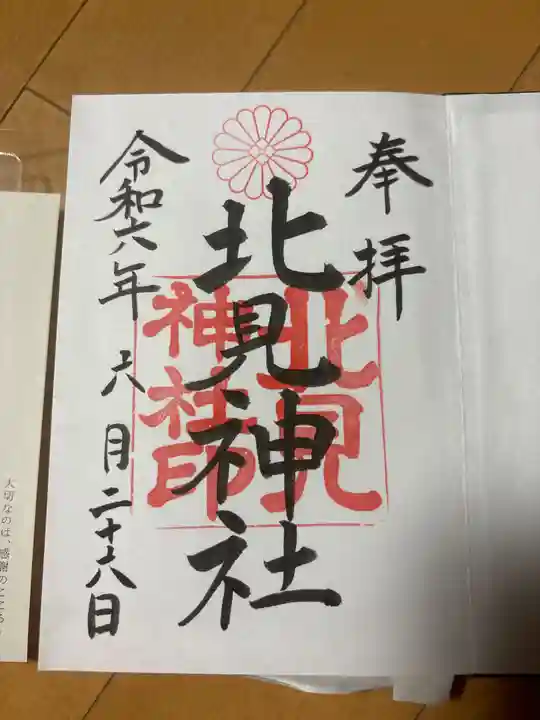 奉拝
北見神社
北見
神社印
令和六年 六月二十六日
大切なのは、感謝のこころ